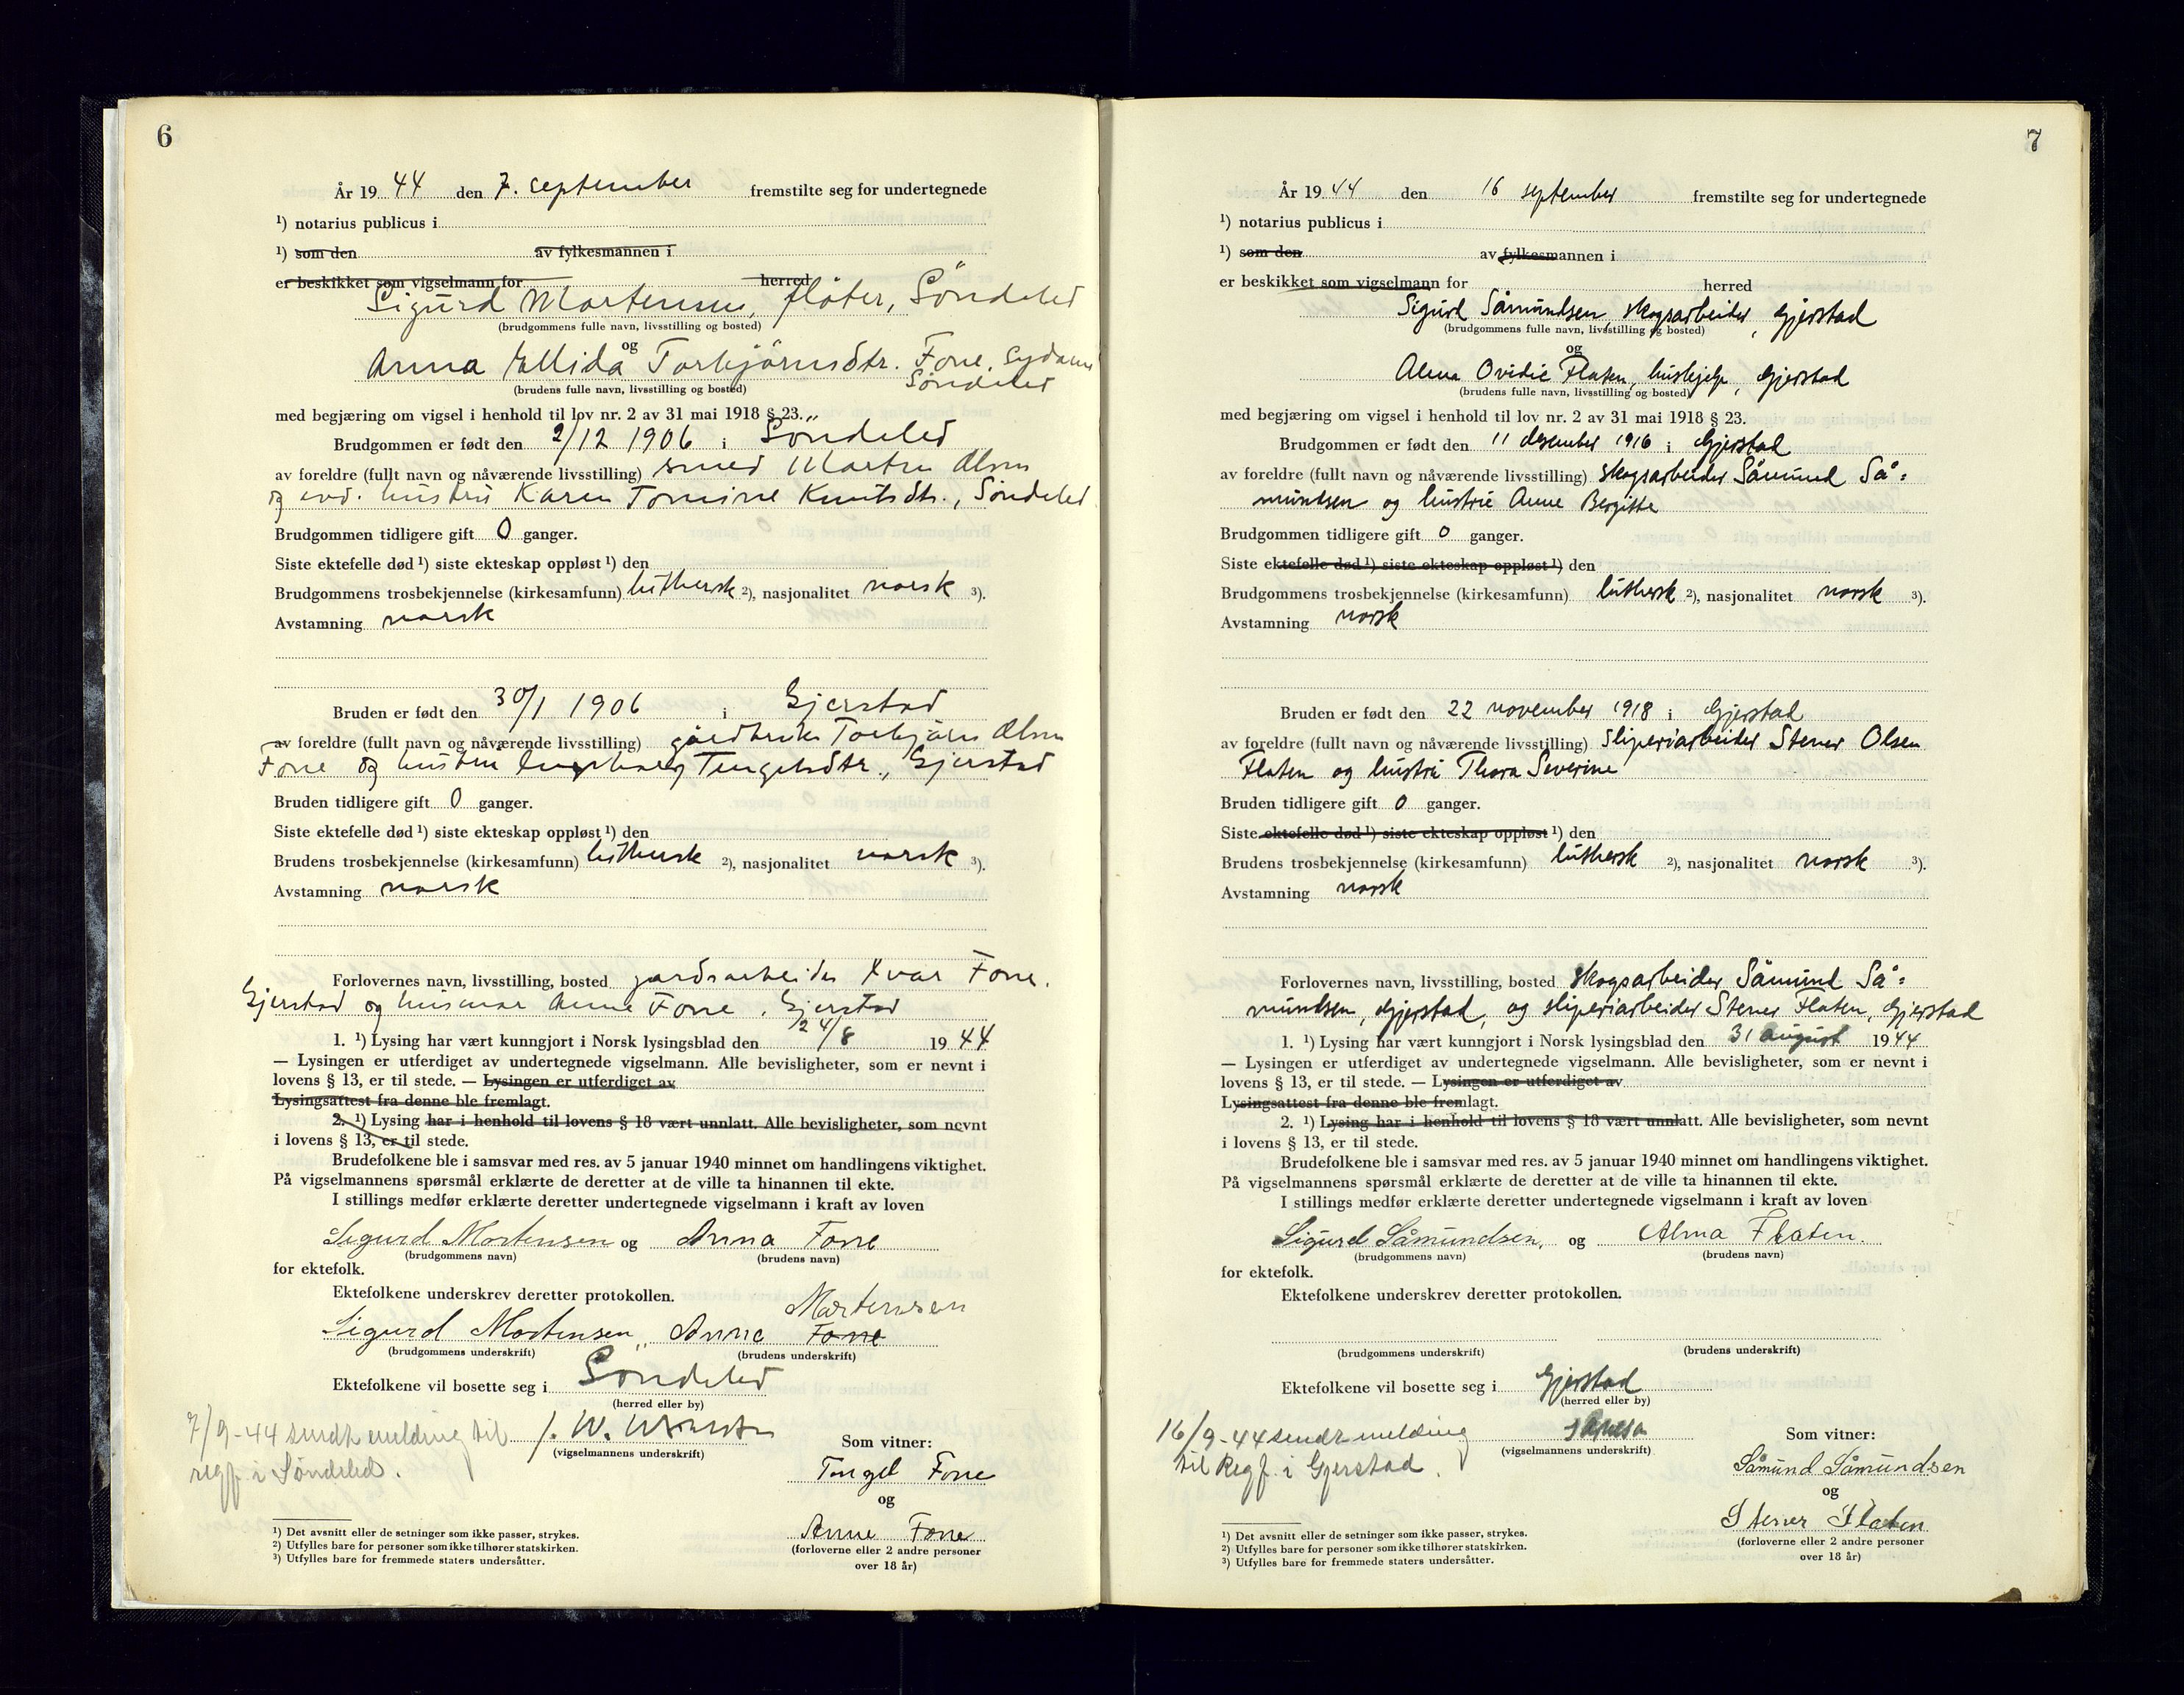 6
År 19 44 den 7. september fremstilte seg for undertegnede
¹) notarius publicus i
¹) som den av fylkesmannen i
er beskikket som vigselmann for herred
Sigurd Mortensen, fløter, Söndeled
(brudgommens fulle navn, livsstilling og bosted)
og
Anna Ellida Torbjörnsdtr. Fone, Sydame
Söndeled
(brudens fulle navn, livsstilling og bosted)
med begjæring om vigsel i henhold til lov nr. 2 av 31 mai 1918 § 23.
Brudgommen er født den 2/12 1906 i Söndeled
av foreldre (fullt navn og nåværende livsstilling) smed Morten Olsen
og hustru Karen Tomine Knutsdtr., Söndeled
Brudgommen tidligere gift 0 ganger.
Siste ektefelle død ¹) siste ekteskap oppløst ¹) den
Brudgommens trosbekjennelse (kirkesamfunn) luthersk ²), nasjonalitet norsk ³).
Avstamning norsk
Bruden er født den 30/1 1906 i Gjerstad
av foreldre (fullt navn og nåværende livsstilling) gårdbruker Torbjörn Olsen
Fone og hustru Ingeborg Tengelsdtr., Gjerstad
Bruden tidligere gift 0 ganger.
Siste ektefelle død ¹) siste ekteskap oppløst ¹) den
Brudens trosbekjennelse (kirkesamfunn) luthersk ²), nasjonalitet norsk ³).
Avstamning norsk
Forlovernes navn, livsstilling, bosted gardsarbeider Ivar Fone,
Gjerstad og husmor Anne Fone, Gjerstad
1. ¹) Lysing har vært kunngjort i Norsk lysingsblad den 24/8 19 44
— Lysingen er utferdiget av undertegnede vigselmann. Alle bevisligheter, som er nevnt i
lovens § 13, er til stede. — Lysingen er utferdiget av
Lysingsattest fra denne ble fremlagt.
2. ¹) Lysing har i henhold til lovens § 18 vært unnlatt. Alle bevisligheter, som nevnt
i lovens § 13, er til stede.
Brudefolkene ble i samsvar med res. av 5 januar 1940 minnet om handlingens viktighet.
På vigselmannens spørsmål erklærte de deretter at de ville ta hinannen til ekte.
I stillings medfør erklærte deretter undertegnede vigselmann i kraft av loven
Sigurd Mortensen og Anna Fone
(brudgommens navn) (brudens navn)
for ektefolk.
Ektefolkene underskrev deretter protokollen.
Mortensen
Sigurd Mortensen Anna Fone
(brudgommens underskrift) (brudens underskrift)
Ektefolkene vil bosette seg i Söndeled
(herred eller by)
7/9-44 sendt melding til
regf. i Söndeled.
(vigselmannens underskrift)
Som vitner:
Tengel Fone
og
Anne Fone
(forloverne eller 2 andre personer
over 18 år)
¹) Det avsnitt eller de setninger som ikke passer, strykes.
²) Utfylles bare for personer som ikke tilhører statskirken.
³) Utfylles bare for fremmede staters undersåtter.
7
År 19 44 den 16 september fremstilte seg for undertegnede
¹) notarius publicus i
¹) som den av fylkesmannen i
er beskikket som vigselmann for herred
Sigurd Såmundsen, skogsarbeider, Gjerstad
(brudgommens fulle navn, livsstilling og bosted)
og
Alma Ovidie Flaten, hushjelp, Gjerstad
(brudens fulle navn, livsstilling og bosted)
med begjæring om vigsel i henhold til lov nr. 2 av 31 mai 1918 § 23.
Brudgommen er født den 11 desember 1916 i Gjerstad
av foreldre (fullt navn og nåværende livsstilling) skogsarbeider Såmund Så=
mundsen og hustru Anne Bergitte
Brudgommen tidligere gift 0 ganger.
Siste ektefelle død ¹) siste ekteskap oppløst ¹) den
Brudgommens trosbekjennelse (kirkesamfunn) luthersk ²), nasjonalitet norsk ³).
Avstamning norsk
Bruden er født den 22 november 1918 i Gjerstad
av foreldre (fullt navn og nåværende livsstilling) sliperiarbeider Stener Olsen
Flaten og hustru Thora Severine
Bruden tidligere gift 0 ganger.
Siste ektefelle død ¹) siste ekteskap oppløst ¹) den
Brudens trosbekjennelse (kirkesamfunn) luthersk ²), nasjonalitet norsk ³).
Avstamning norsk
Forlovernes navn, livsstilling, bosted skogsarbeider Såmund Så=
mundsen, Gjerstad, og sliperiarbeider Stener Flaten, Gjerstad
1. ¹) Lysing har vært kunngjort i Norsk lysingsblad den 31 august 19 44
— Lysingen er utferdiget av undertegnede vigselmann. Alle bevisligheter, som er nevnt i
lovens § 13, er til stede. — Lysingen er utferdiget av
Lysingsattest fra denne ble fremlagt.
2. ¹) Lysing har i henhold til lovens § 18 vært unnlatt. Alle bevisligheter, som nevnt
i lovens § 13, er til stede.
Brudefolkene ble i samsvar med res. av 5 januar 1940 minnet om handlingens viktighet.
På vigselmannens spørsmål erklærte de deretter at de ville ta hinannen til ekte.
I stillings medfør erklærte deretter undertegnede vigselmann i kraft av loven
Sigurd Såmundsen, og Alma Flaten.
(brudgommens navn) (brudens navn)
for ektefolk.
Ektefolkene underskrev deretter protokollen.
(brudgommens underskrift) (brudens underskrift)
Ektefolkene vil bosette seg i Gjerstad
(herred eller by)
16/9-44 sendt melding
til Regf. i Gjerstad.
(vigselmannens underskrift)
Som vitner:
Såmund Såmundsen
og
Stener Flaten
(forloverne eller 2 andre personer
over 18 år)
¹) Det avsnitt eller de setninger som ikke passer, strykes.
²) Utfylles bare for personer som ikke tilhører statskirken.
³) Utfylles bare for fremmede staters undersåtter.